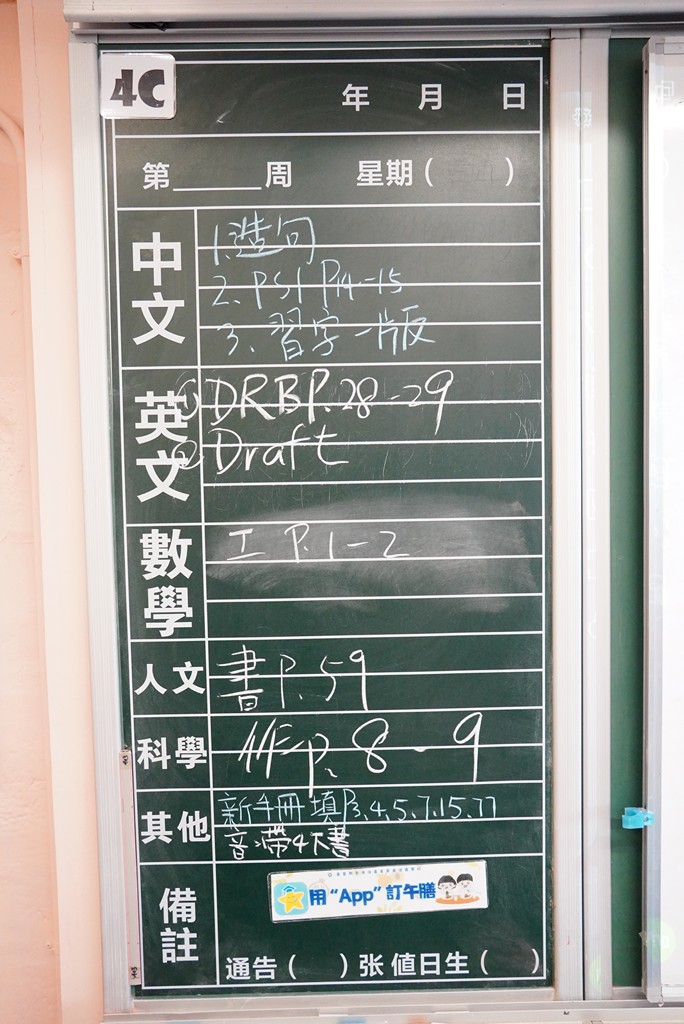 4C
年 月 日
第______周 星期( )
中文
1.造句
2、PS1 P14-15
3、習字一版
英文
①DRB P.28-29
②Draft
數學
工 P.1-2
人文
書 P.59
科學
作 p. 8-9
其他
新手冊填P3.4.5.7.15.77
音:帶4下書
備註
用“App”訂午膳
通告( )张 值日生( )